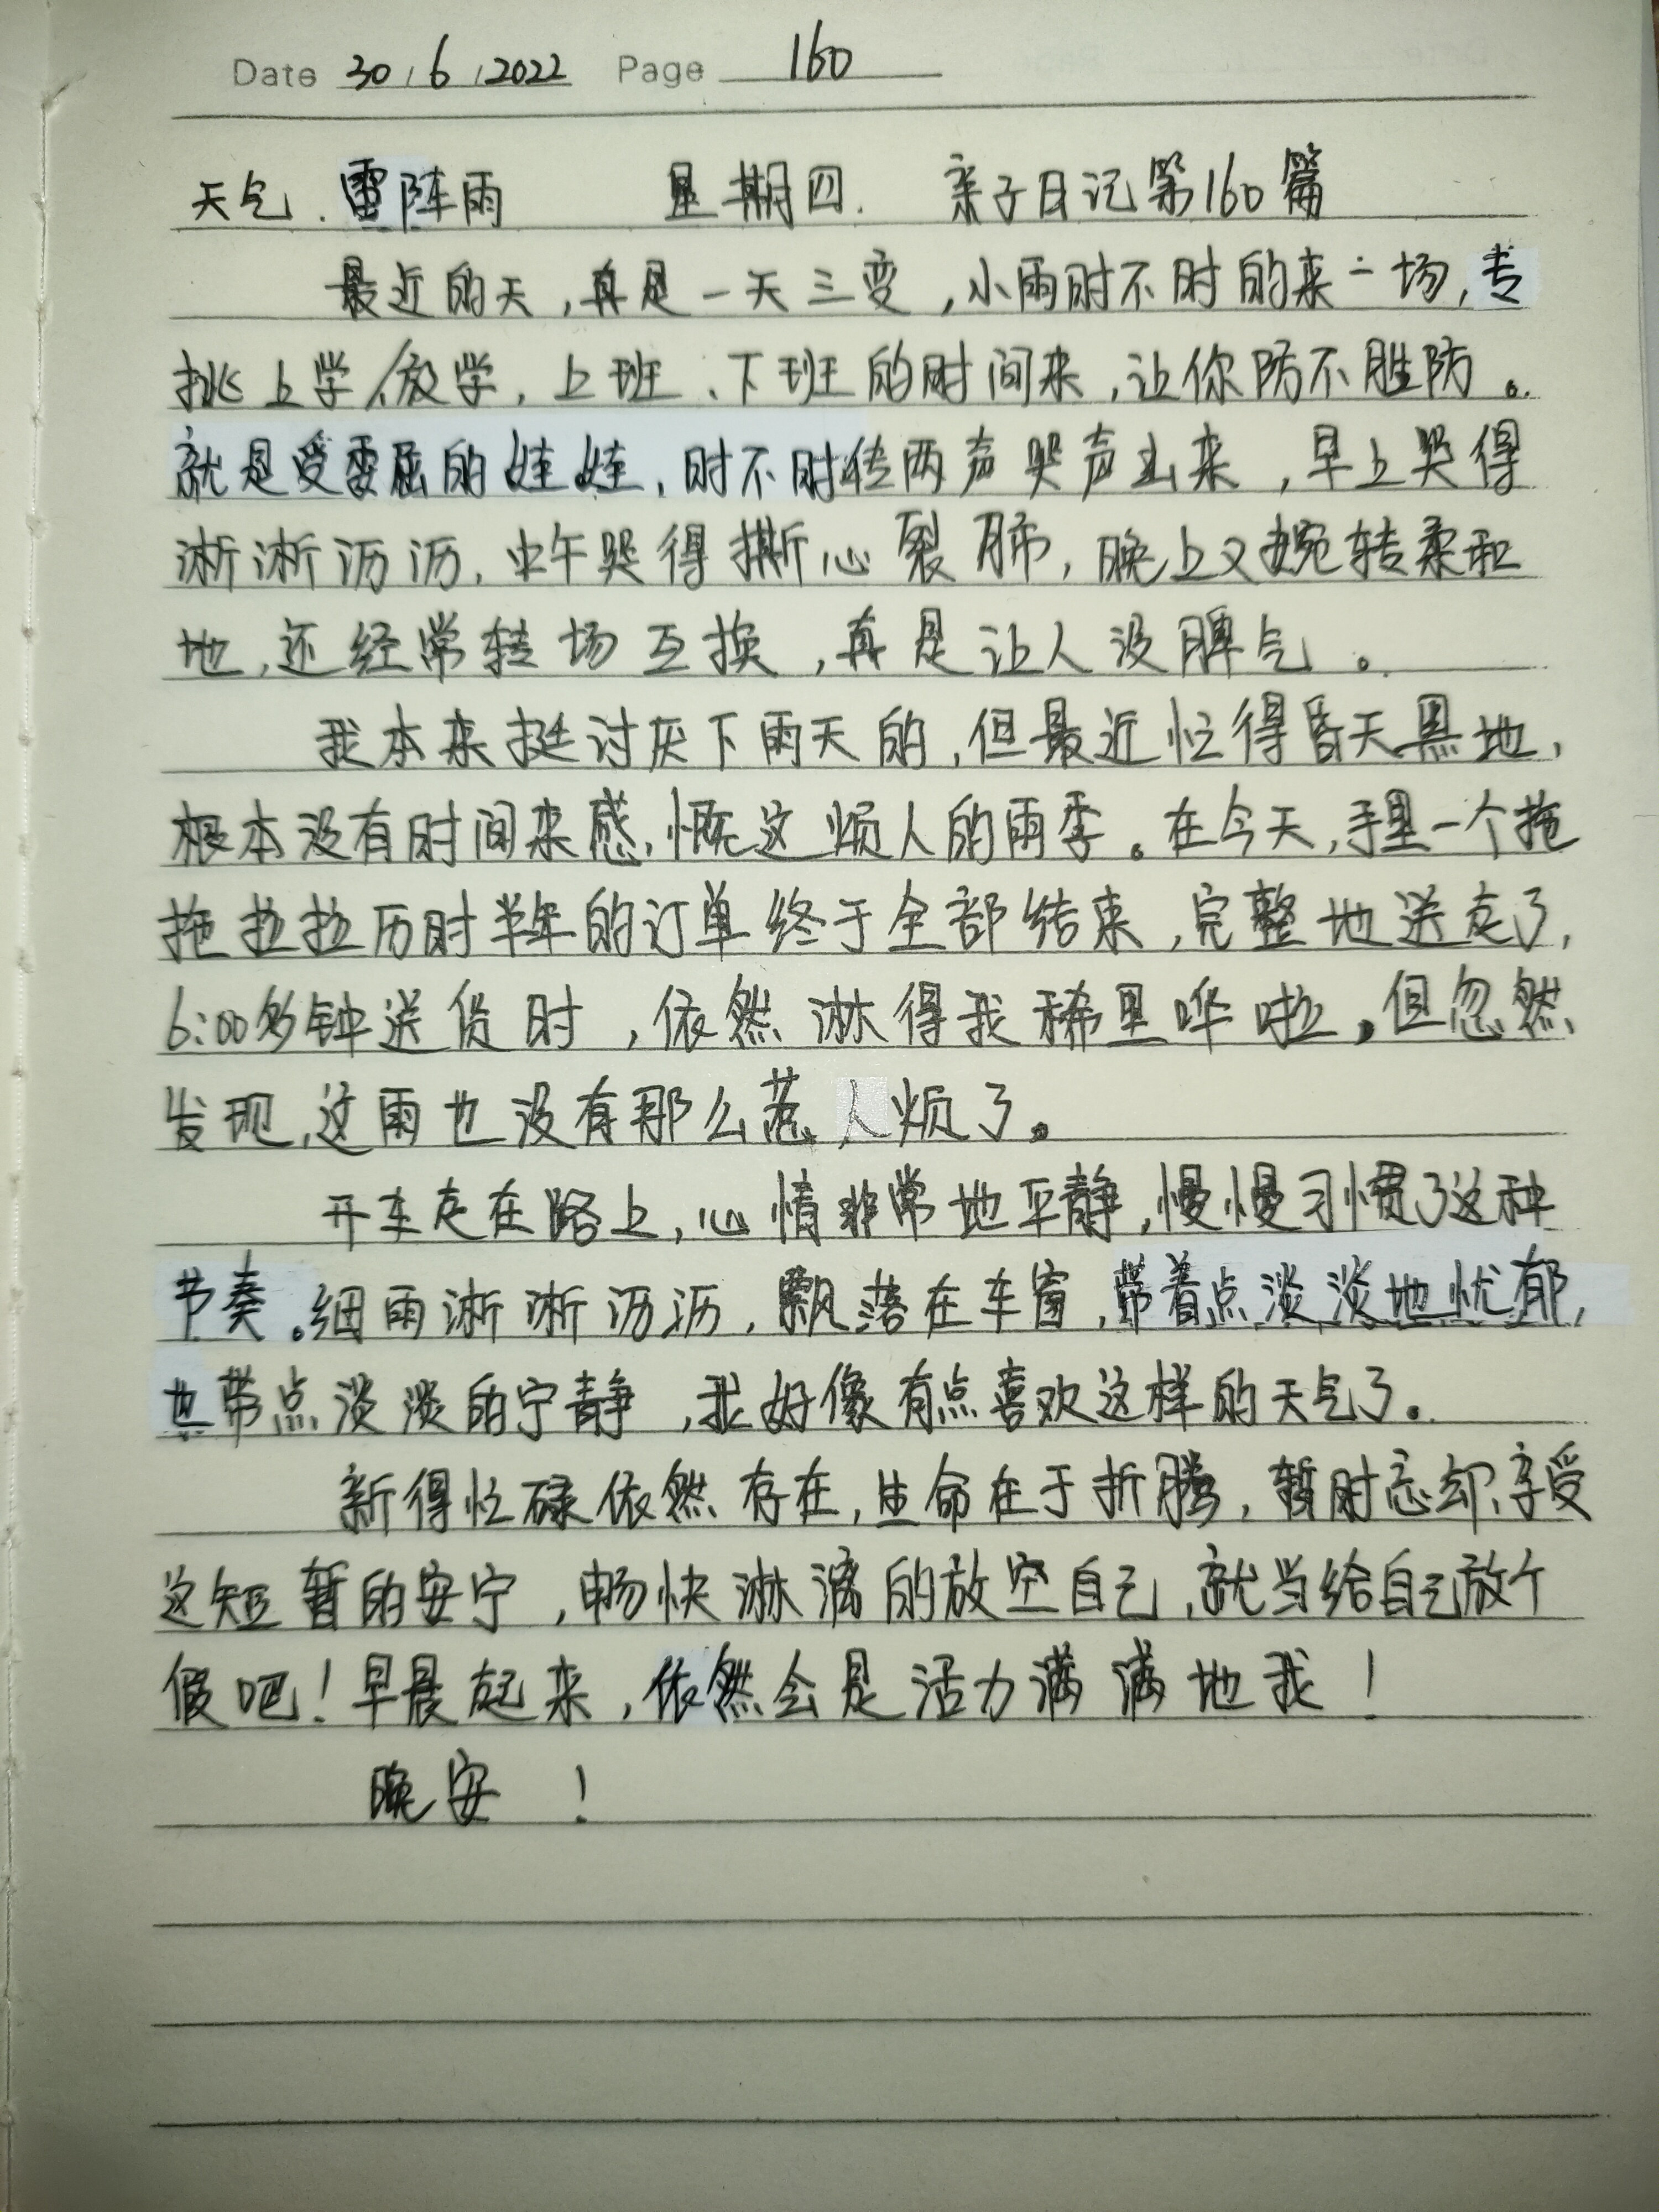 Date 30/6/2022 Page 160
天气.雷阵雨 星期四. 亲子日记第160篇
最近的天,真是一天三变,小雨时不时的来一场,专
挑上学、放学,上班、下班的时间来,让你防不胜防。
就是受委屈的娃娃,时不时传两声哭声出来,早上哭得
淅淅沥沥,中午哭得撕心裂肺,晚上又婉转柔和
地,还经常转场互换,真是让人没脾气。
我本来挺讨厌下雨天的,但最近忙得昏天黑地,
根本没有时间来感慨这烦人的雨季。在今天,手里一个拖
拖拉拉历时半年的订单终于全部结束,完整地送走了,
6:00多钟送货时,依然淋得我稀里哗啦,但忽然
发现,这雨也没有那么惹人烦了。
开车走在路上,心情非常地平静,慢慢习惯了这种
节奏。细雨淅淅沥沥,飘落在车窗,带着点淡淡地忧郁,
也带点淡淡的宁静,我好像有点喜欢这样的天气了。
新得忙碌依然存在,生命在于折腾,暂时忘却、享受
这短暂的安宁,畅快淋漓的放空自己,就当给自己放个
假吧!早晨起来,依然会是活力满满地我!
晚安!